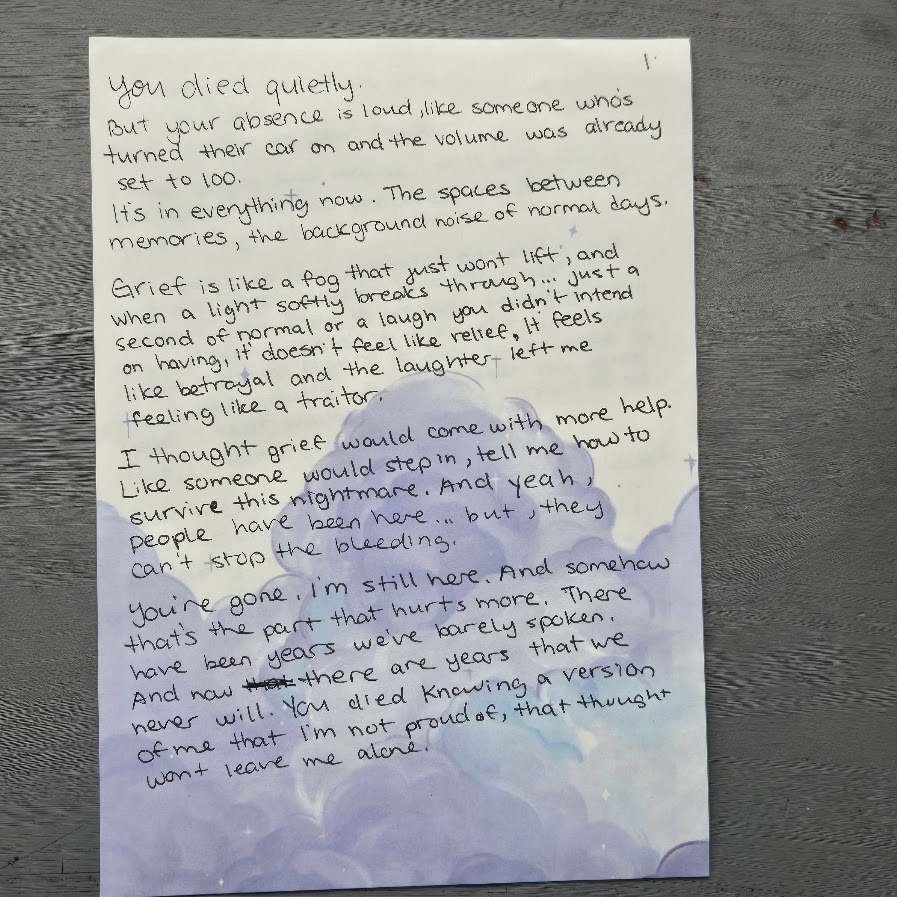 1.
You died quietly.
But your absence is loud, like someone who's
turned their car on and the volume was already
set to 100.
It's in everything now. The spaces between
memories, the background noise of normal days.
Grief is like a fog that just wont lift, and
when a light softly breaks through... just a
second of normal or a laugh you didn't intend
on having, it doesn't feel like relief. It feels
like betrayal and the laughter left me
feeling like a traitor.
I thought grief would come with more help.
Like someone would step in, tell me how to
survive this nightmare. And yeah,
people have been here... but, they
can't stop the bleeding.
You're gone. I'm still here. And somehow
that's the part that hurts more. There
have been years we've barely spoken.
And now there are years that we
never will. You died knowing a version
of me that I'm not proud of, that thought
wont leave me alone.